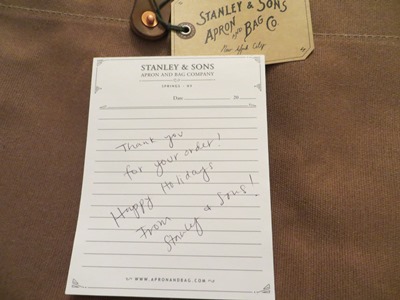 STANLEY & SONS
APRON AND BAG CO.
New York City
STANLEY & SONS
APRON AND BAG COMPANY
SPRINGS - NY
Date 20
Thank you
for your order!
Happy Holidays
From
Stanley & Sons!
WWW.APRONANDBAG.COM